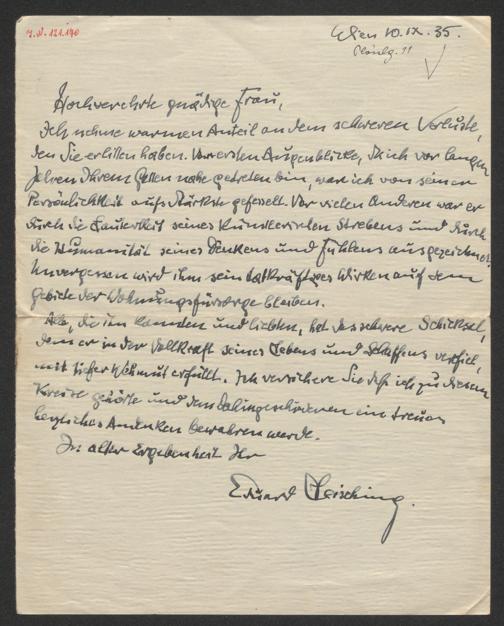 J.N. 121.190
Wien 10.IX.35.
Hochverehrte gnädige Frau,
Ich nehme warmen Anteil an dem schweren Verluste,
den Sie erlitten haben. Vom ersten Augenblicke, da ich vor langen
Jahren Ihrem Gatten nahe getreten bin, war ich von seiner
Persönlichkeit aufs Stärkste gefesselt. Vor vielen Anderen war er
durch die Lauterkeit seines künstlerischen Strebens und durch
die Humanität seines Denkens und Fühlens ausgezeichnet.
Unvergessen wird ihm sein tatkräftiges Wirken auf dem
Gebiete der Wohnungsfürsorge bleiben.
Alle, die ihn kannten und liebten, hat das schwere Schicksal,
dem er in der Vollkraft seines Lebens und Schaffens verfiel,
mit tiefer Wehmut erfüllt. Ich versichere Sie daß ich zu diesem
Kreise gehörte und dem Dahingeschiedenen ein treues
herzliches Andenken bewahren werde.
In alter Ergebenheit Ihr
Eduard Leisching.